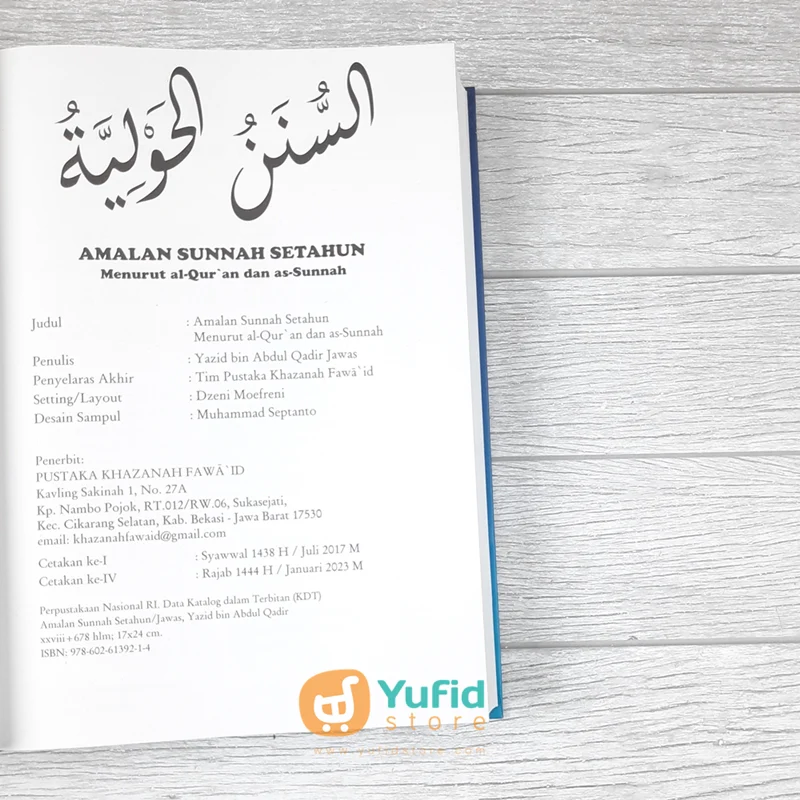 السُّنَنُ الحَوْلِيَّةُ
AMALAN SUNNAH SETAHUN
Menurut al-Qur`an dan as-Sunnah
Judul : Amalan Sunnah Setahun
Menurut al-Qur`an dan as-Sunnah
Penulis : Yazid bin Abdul Qadir Jawas
Penyelaras Akhir : Tim Pustaka Khazanah Fawā`id
Setting/Layout : Dzeni Moefreni
Desain Sampul : Muhammad Septanto
Penerbit:
PUSTAKA KHAZANAH FAWĀ`ID
Kavling Sakinah 1, No. 27A
Kp. Nambo Pojok, RT.012/RW.06, Sukasejati,
Kec. Cikarang Selatan, Kab. Bekasi - Jawa Barat 17530
email: khazanahfawaid@gmail.com
Cetakan ke-I : Syawwal 1438 H / Juli 2017 M
Cetakan ke-IV : Rajab 1444 H / Januari 2023 M
Perpustakaan Nasional RI. Data Katalog dalam Terbitan (KDT)
Amalan Sunnah Setahun/Jawas, Yazid bin Abdul Qadir
xxviii + 678 hlm; 17x24 cm.
ISBN: 978-602-61392-1-4
Yufid
store
www.yufidstore.com